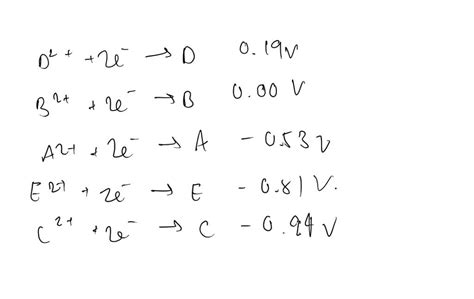 D²⁺ + 2e⁻ → D 0.19V
B²⁺ + 2e⁻ → B 0.00 V
A²⁺ + 2e⁻ → A - 0.53 V
E²⁺ + 2e⁻ → E - 0.81 V.
C²⁺ + 2e⁻ → C - 0.94 V